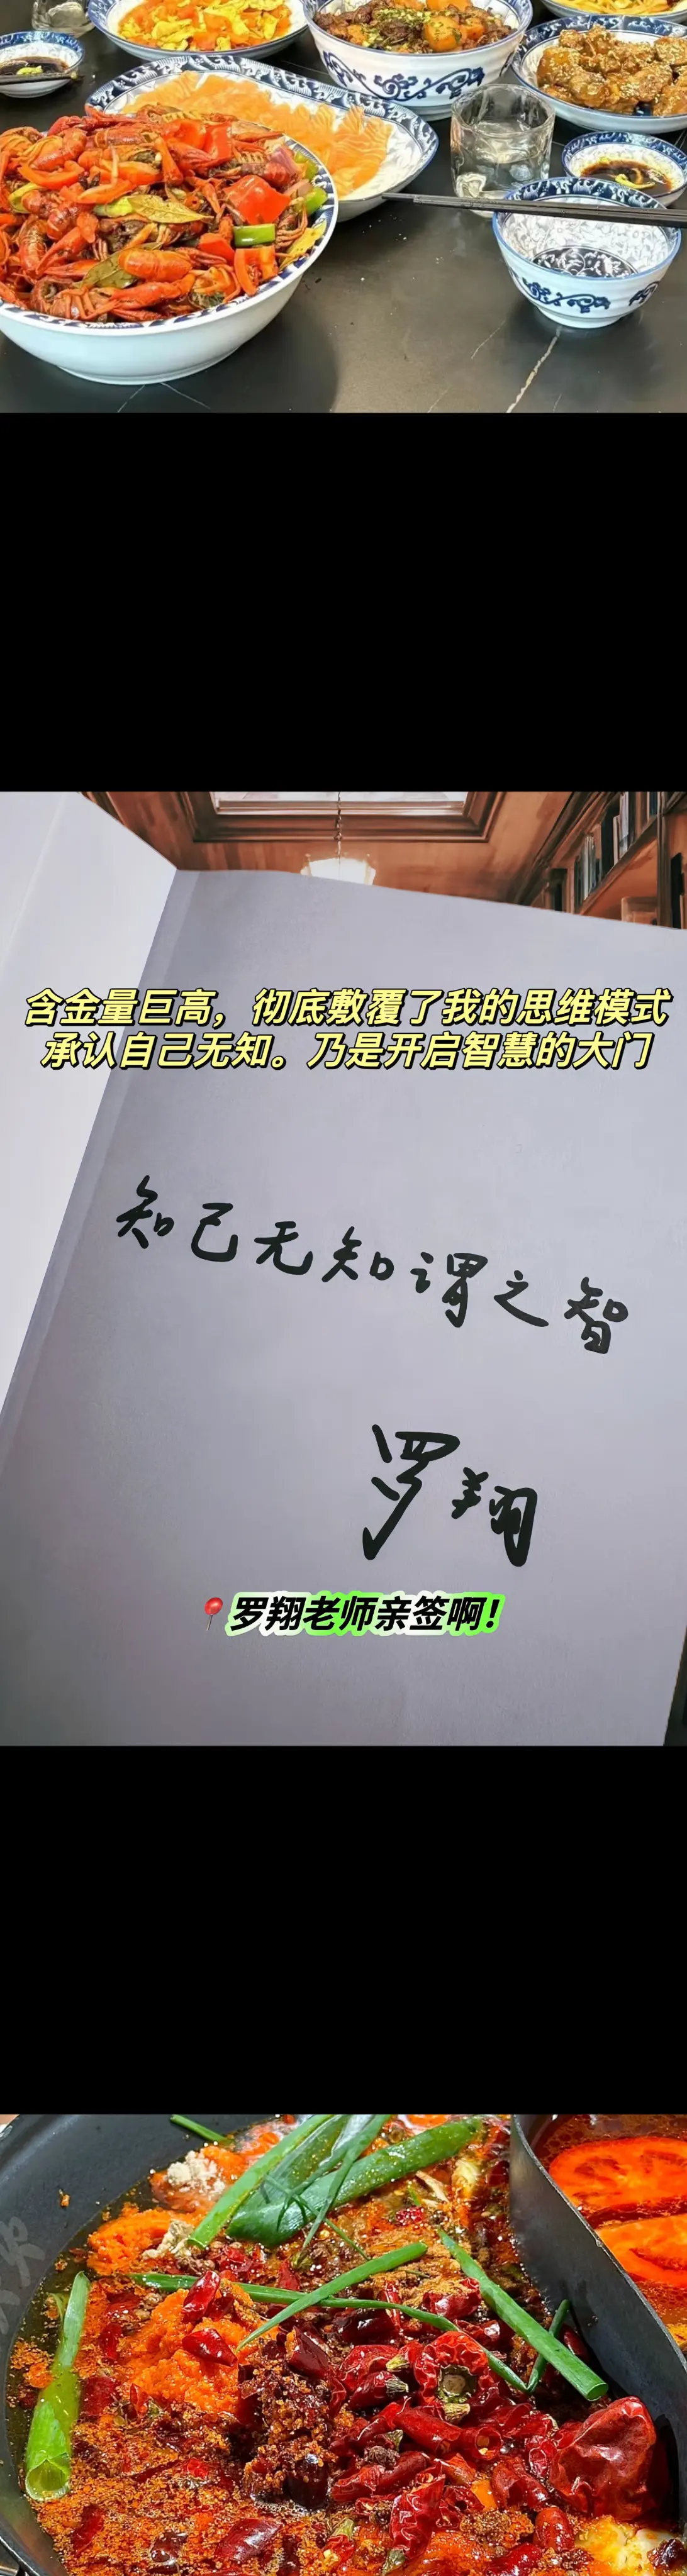 含金量巨高，彻底敷覆了我的思维模式
承认自己无知。乃是开启智慧的大门
知己无知谓之智
罗翔
罗翔老师亲签啊！